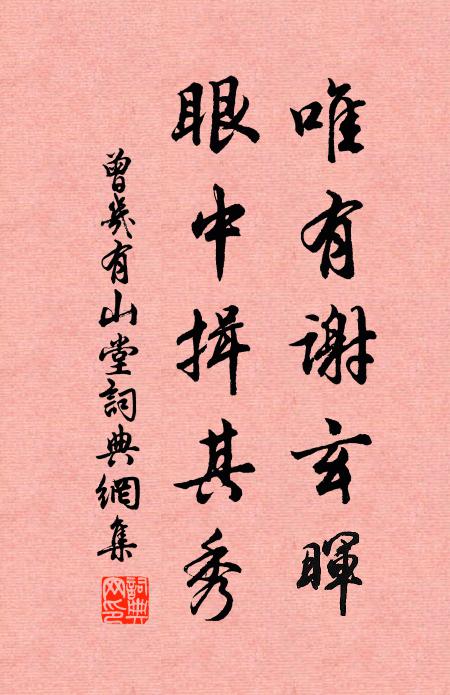 唯有謝玄暉
眼中揖其秀
曾幾有山堂詞典網集
詞典網印